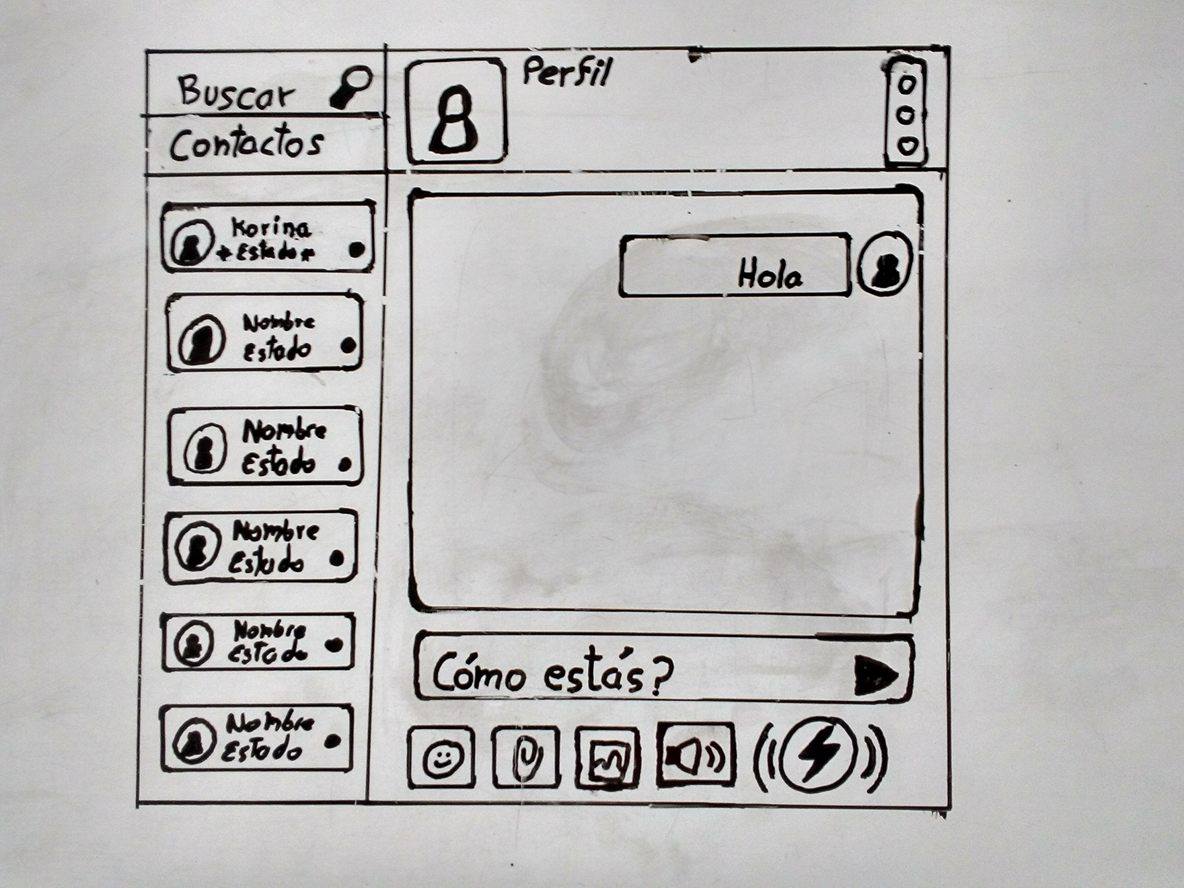 Buscar
Contactos
Perfil
Korina
*Estado*
Nombre
Estado
Nombre
Estado
Nombre
Estado
Nombre
Estado
Nombre
Estado
Hola
Cómo estás?